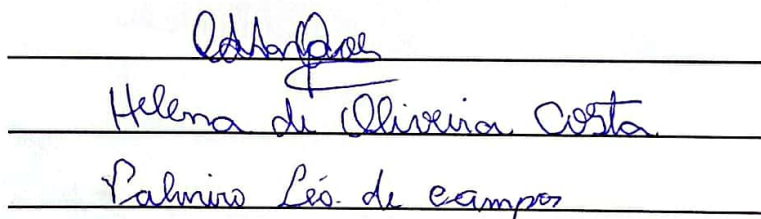 Helena de Oliveira Costa
Palmiro Léo. de campos